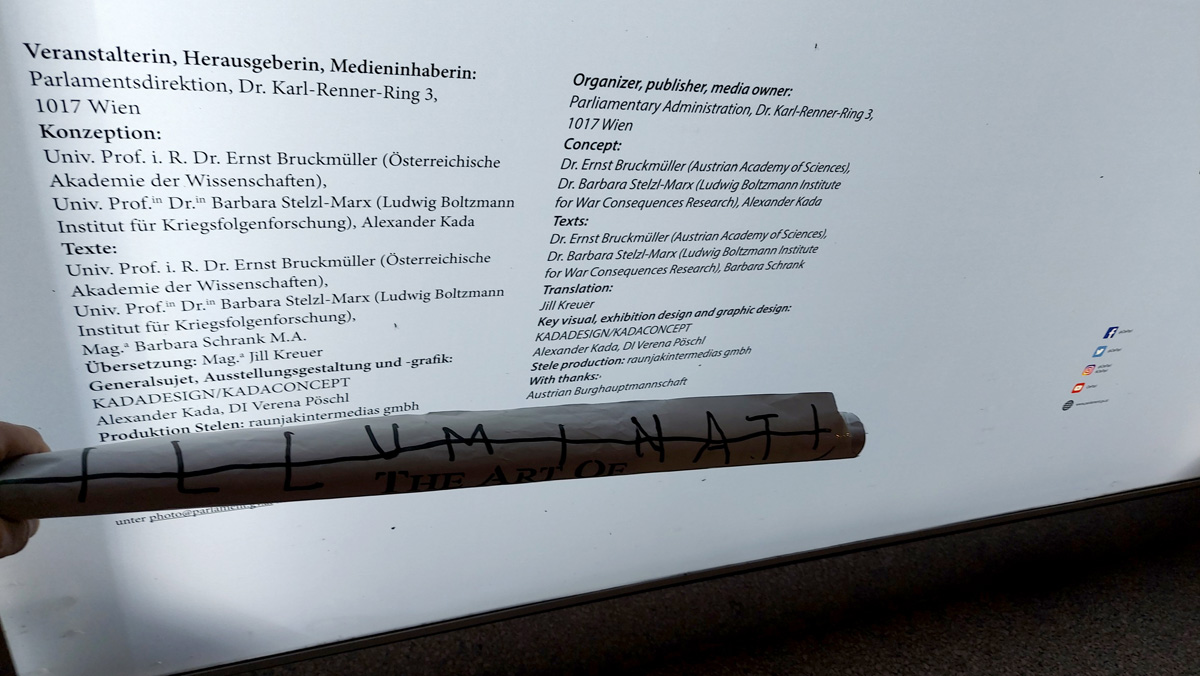 Veranstalterin, Herausgeberin, Medieninhaberin:
Parlamentsdirektion, Dr. Karl-Renner-Ring 3,
1017 Wien
Konzeption:
Univ. Prof. i. R. Dr. Ernst Bruckmüller (Österreichische
Akademie der Wissenschaften),
Univ. Prof.ⁱⁿ Dr.ⁱⁿ Barbara Stelzl-Marx (Ludwig Boltzmann
Institut für Kriegsfolgenforschung), Alexander Kada
Texte:
Univ. Prof. i. R. Dr. Ernst Bruckmüller (Österreichische
Akademie der Wissenschaften),
Univ. Prof.ⁱⁿ Dr.ⁱⁿ Barbara Stelzl-Marx (Ludwig Boltzmann
Institut für Kriegsfolgenforschung),
Mag.ᵃ Barbara Schrank M.A.
Übersetzung: Mag.ᵃ Jill Kreuer
Generalsujet, Ausstellungsgestaltung und -grafik:
KADADESIGN/KADACONCEPT
Alexander Kada, DI Verena Pöschl
Produktion Stelen: raunjakintermedias gmbh
unter
Organizer, publisher, media owner:
Parliamentary Administration, Dr. Karl-Renner-Ring 3,
1017 Wien
Concept:
Dr. Ernst Bruckmüller (Austrian Academy of Sciences),
Dr. Barbara Stelzl-Marx (Ludwig Boltzmann Institute
for War Consequences Research), Alexander Kada
Texts:
Dr. Ernst Bruckmüller (Austrian Academy of Sciences),
Dr. Barbara Stelzl-Marx (Ludwig Boltzmann Institute
for War Consequences Research), Barbara Schrank
Translation:
Jill Kreuer
Key visual, exhibition design and graphic design:
KADADESIGN/KADACONCEPT
Alexander Kada, DI Verena Pöschl
Stele production: raunjakintermedias gmbh
With thanks:
Austrian Burghauptmannschaft
ILLUMINATI
THE ART OF